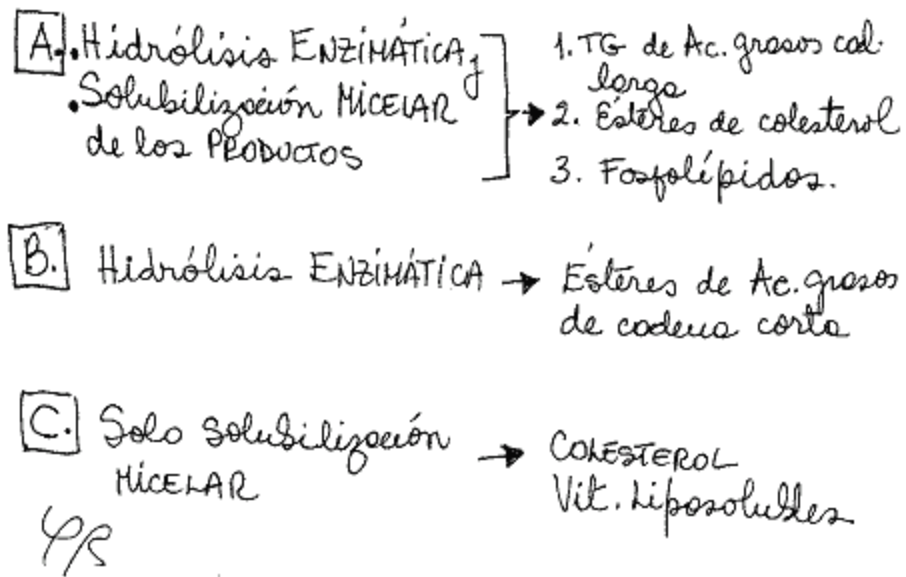 A. . Hidrólisis ENZIMÁTICA y
. Solubilización MICELAR
de los PRODUCTOS
1. TG de Ac. grasos cad.
larga
2. Ésteres de colesterol
3. Fosfolípidos.
B. Hidrólisis ENZIMÁTICA → Ésteres de Ac. grasos
de cadena corta
C. Solo Solubilización
MICELAR
→ COLESTEROL
Vit. Liposolubles